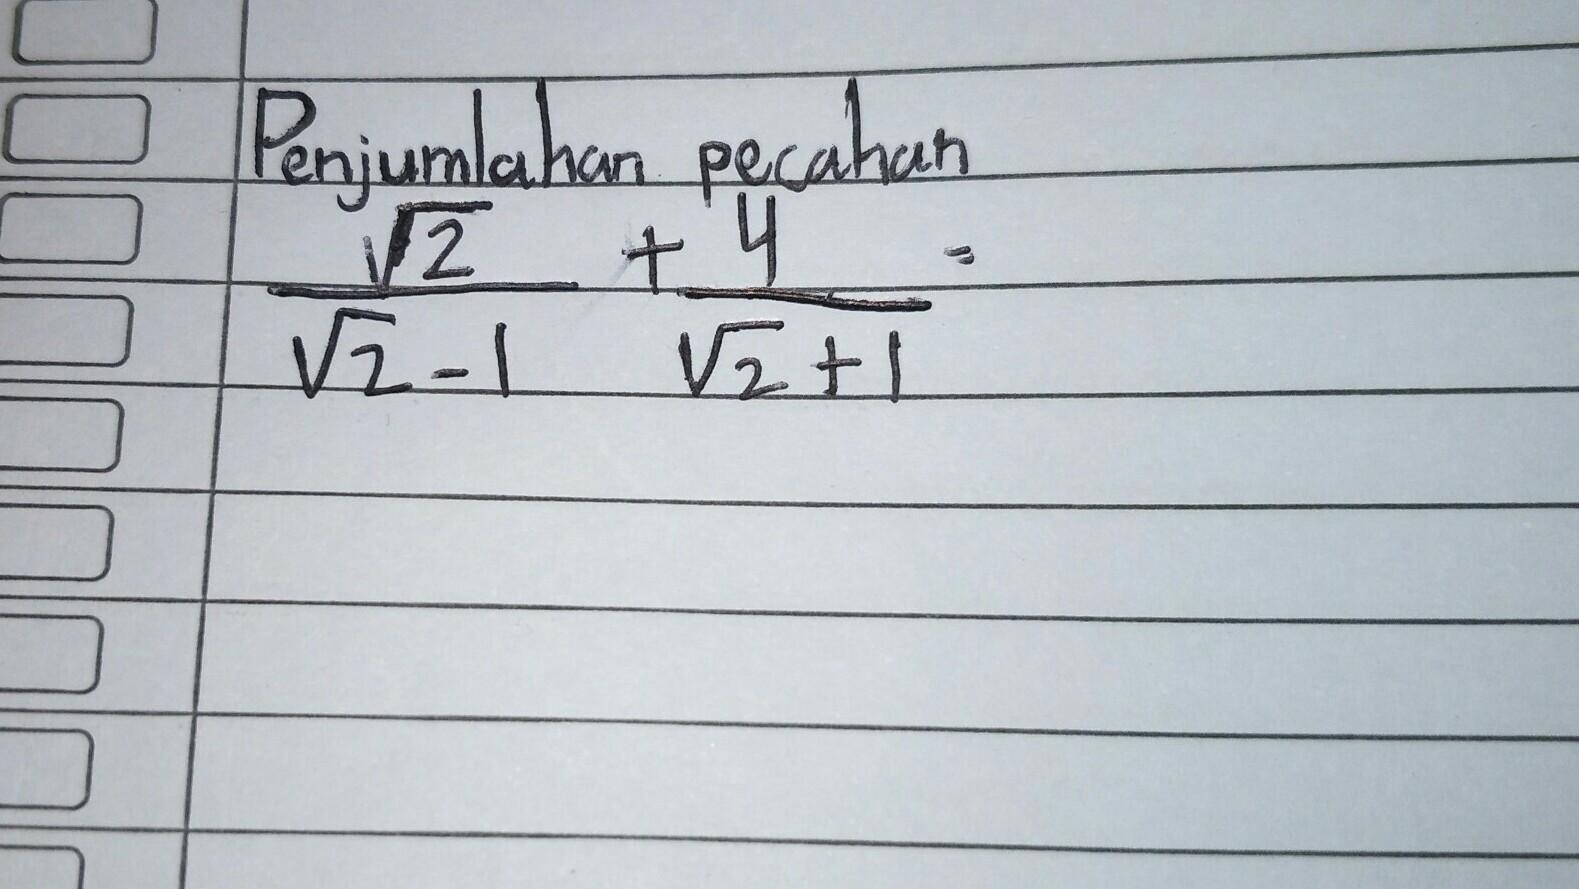 Penjumlahan pecahan
√2 + 4 =
√2 - 1 √2 + 1